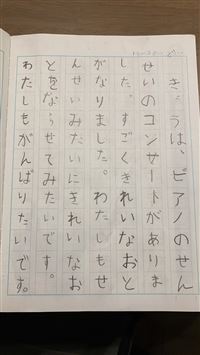 きょうは、ピアノのせん
せいのコンサートがありま
した。すごくきれいなおと
がなりました。わたしもせ
んせいみたいにきれいなお
とをならせてみたいです。
わたしもがんばりたいです。